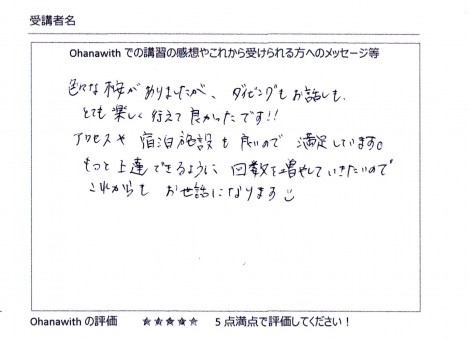 受講者名
Ohanawith での講習の感想やこれから受けられる方へのメッセージ等
色々な不安がありましたが、ダイビングもお話しも、
とても楽しく行えて良かったです!!
アクセスや宿泊施設も良いので満足しています。
もっと上達できるように回数を増やしていきたいので
これからもお世話になります
Ohanawith の評価 ★★★★★ 5 点満点で評価してください!